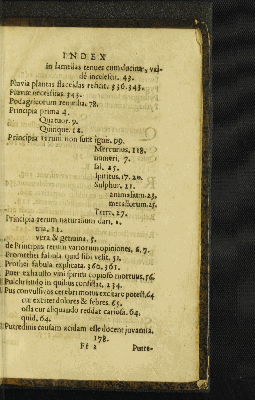 INDEX
in lamellas tenues cum ducitur, val-
dè incalescit. 43.
Pluvia plantas flaccidas reficit. 336. 343.
Pluviæ necessitas. 343.
Podagricorum remedia. 78.
Principia prima 4.
Quatuor. 9.
Quinque. 12.
Principia rerum non sunt ignis. 99.
Mercurius. 118.
numeri. 7.
sal. 25.
spiritus. 17. 20.
Sulphur. 21.
animalium. 23.
metallorum. 25.
Terra. 27.
Principia rerum naturalium dari. 1.
una. 11.
vera & genuina. 5.
de Principiis rerum variorum opiniones. 6. 7.
Promethei fabula quid sibi velit. 31.
Prothei fabula explicata. 360. 361.
Puer exhausto vini spiritu copioso mortuus. 56.
Pulchritudo in quibus consistat. 234.
Pus convulsivos cerebri motus excitare potest. 64
cur excitet dolores & febres. 65.
ossa cur aliquando reddat cariosa. 64.
quid. 64.
Putredinis causam acidam esse docent juvantia.
178.
Ff 2 Putre-